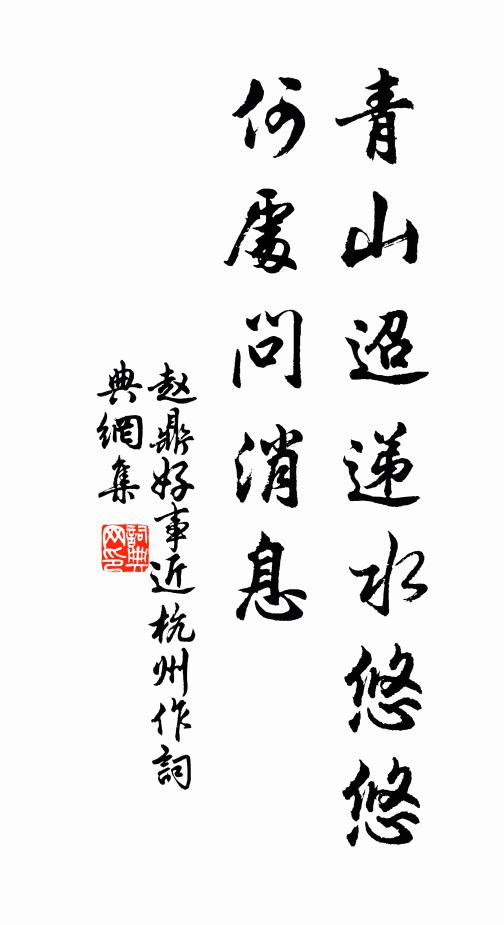 青山迢递水悠悠
何處问消息
赵鼎好事近杭州作詞
典網集
詞典
网印